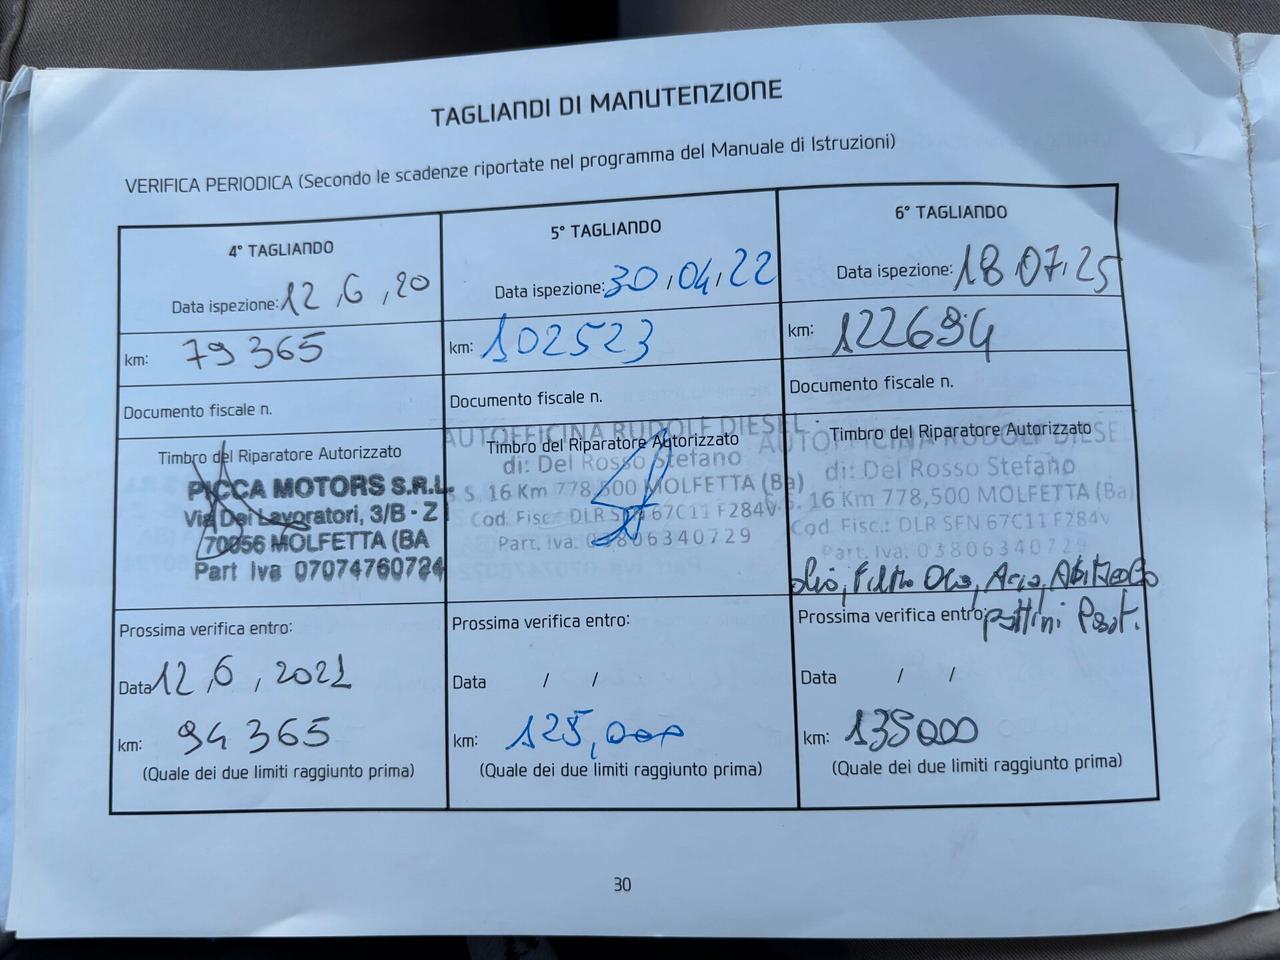 TAGLIANDI DI MANUTENZIONE
VERIFICA PERIODICA (Secondo le scadenze riportate nel programma del Manuale di Istruzioni)
4° TAGLIANDO
Data ispezione: 12,6,20
km: 79365
Documento fiscale n.
Timbro del Riparatore Autorizzato
PICCA MOTORS S.R.L.
Via Dei Lavoratori, 3/B - Z
70056 MOLFETTA (BA
Part Iva 07074760724
Prossima verifica entro:
Data 12,6,2021
km: 94365
(Quale dei due limiti raggiunto prima)
5° TAGLIANDO
Data ispezione: 30,04,22
km: 102523
Documento fiscale n.
AUTOFFICINA RUDOLF DIESEL
Timbro del Riparatore Autorizzato
di: Del Rosso Stefano
S.S. 16 Km 778,500 MOLFETTA (Ba)
Cod. Fisc.: DLR SFN 67C11 F284V
Part. Iva: 03806340729
Prossima verifica entro:
Data / /
km: 125,000
(Quale dei due limiti raggiunto prima)
6° TAGLIANDO
Data ispezione: 18.07.25
km: 122694
Documento fiscale n.
Timbro del Riparatore Autorizzato
AUTOFFICINA RUDOLF DIESEL
di: Del Rosso Stefano
S. 16 Km 778,500 MOLFETTA (Ba)
Cod. Fisc.: DLR SFN 67C11 F284V
Part. Iva: 03806340729
olio, Filtro Olio, Aria, Abitacolo
Prossima verifica entro: pattini Post.
Data / /
km: 135000
(Quale dei due limiti raggiunto prima)
30